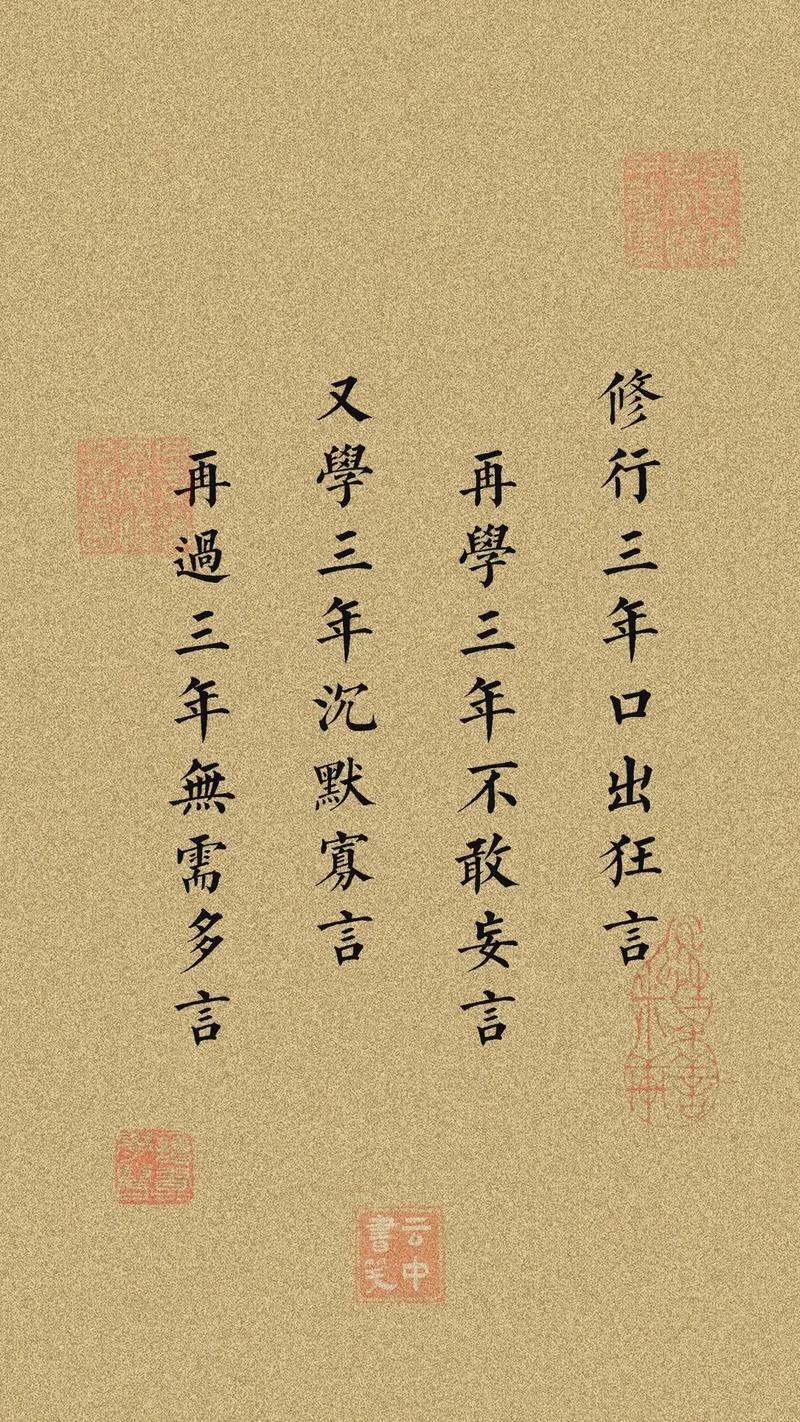 修行三年口出狂言
再學三年不敢妄言
又學三年沉默寡言
再過三年無需多言
云中
書笑